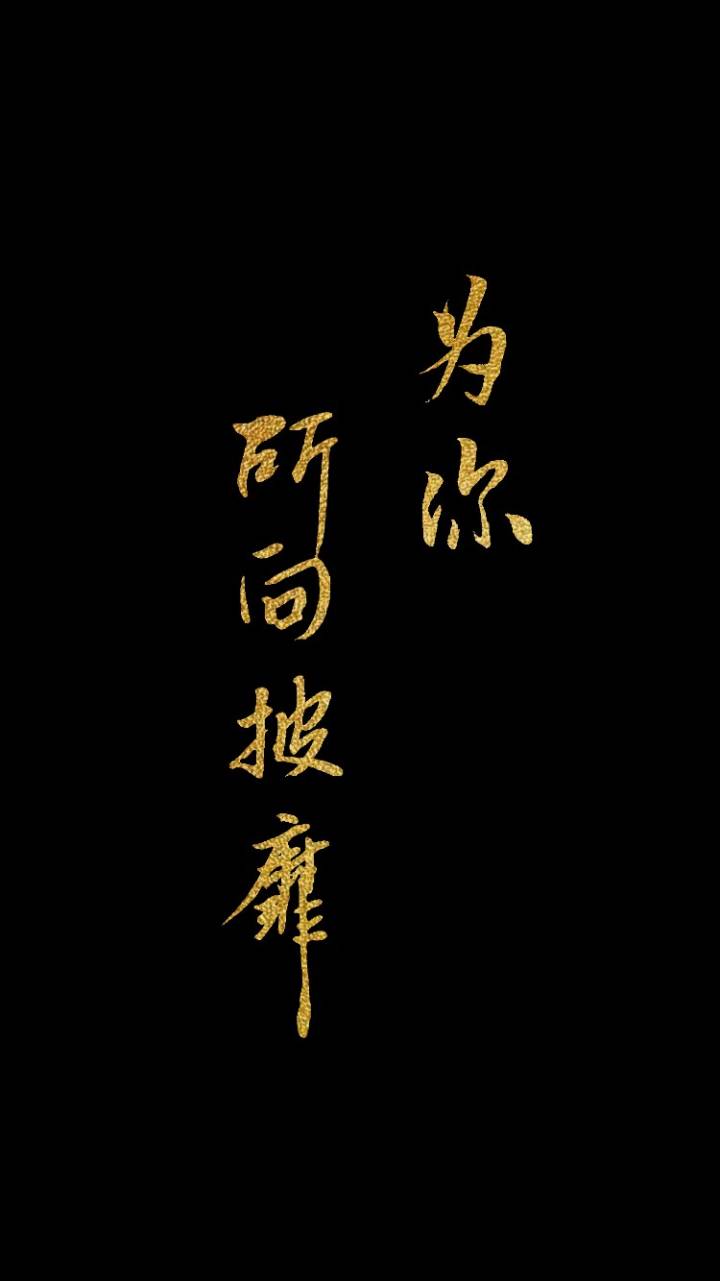 为你
所向披靡